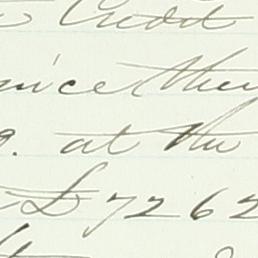 Credit
nice they
at the
£ 7262